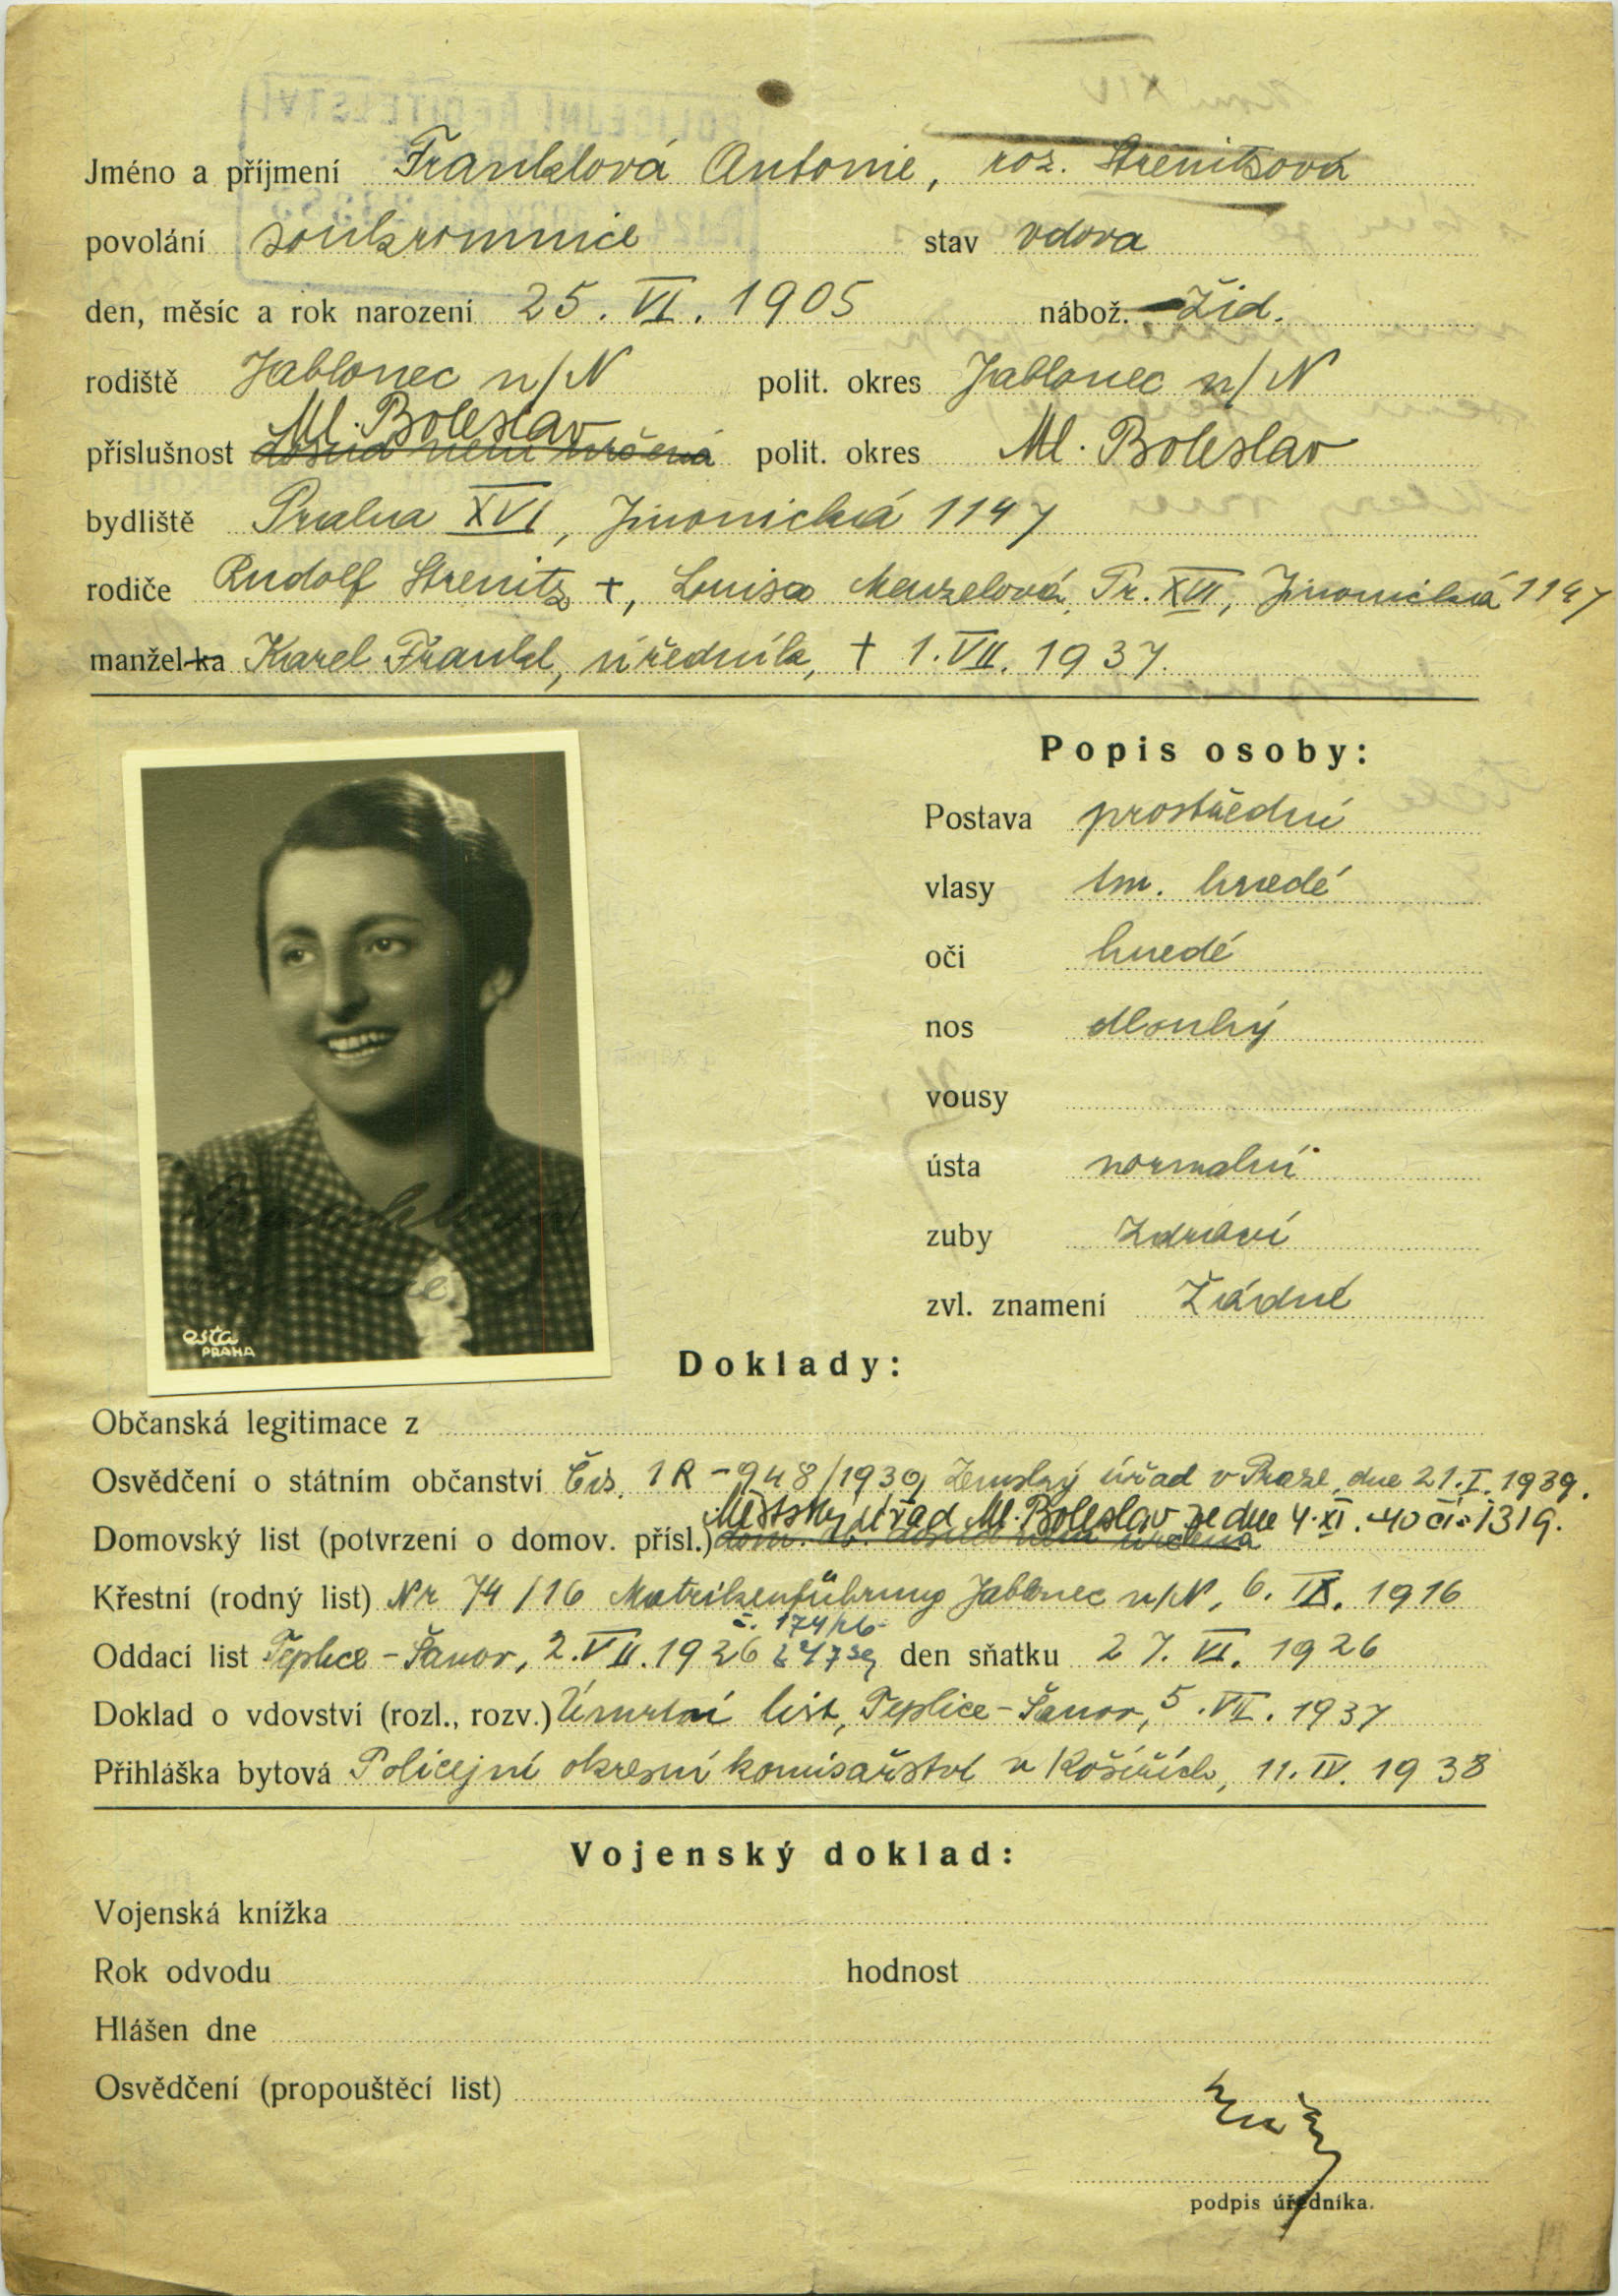 Jméno a příjmení Franklová Antonie, roz. Strenitzová
povolání soukromnice stav vdova
den, měsíc a rok narození 25. VI. 1905 nábož. Žid.
rodiště Jablonec n/N polit. okres Jablonec n/N
Ml. Boleslav
příslušnost dosud není určená polit. okres Ml. Boleslav
bydliště Praha XVI, Jinonická 1147
rodiče Rudolf Strenitz +, Louisa Menzelová, Pr. XVI, Jinonická 1147
manžel-ka Karel Frankl, úředník, + 1. VII. 1937.
Popis osoby:
Postava prostřední
vlasy tm. hnedé
oči hnedé
nos dlouhý
vousy
ústa normalní
zuby zdraví
zvl. znamení Žádné
esta
PRAHA
Doklady:
Občanská legitimace z
Osvědčení o státním občanství Čís. 1R-948/1939, Zemský úřad v Praze, dne 21. I. 1939.
Městský úřad Ml. Boleslav ze dne 4. XI. 40 čís 1319.
Domovský list (potvrzení o domov. přísl.) dom. dosud není určena
Křestní (rodný list) Nr 74/16 Matrikenführung Jablonec n/N, 6. IX. 1916
č. 174/26
Oddací list Teplice-Šanov, 2. VII. 1926 den sňatku 27. VI. 1926
Doklad o vdovství (rozl., rozv.) Úmrtní list, Teplice-Šanov, 5. VII. 1937
Přihláška bytová Policejní okresní komisařství v Košířích, 11. IV. 1938
Vojenský doklad:
Vojenská knížka
Rok odvodu hodnost
Hlášen dne
Osvědčení (propouštěcí list)
podpis úředníka.